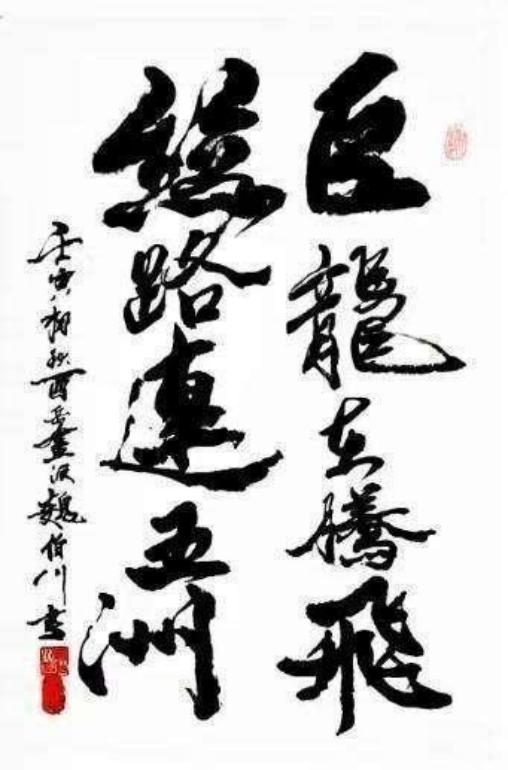 巨龍在騰飛
絲路連五洲
壬寅初秋西岳畫派魏伯川书